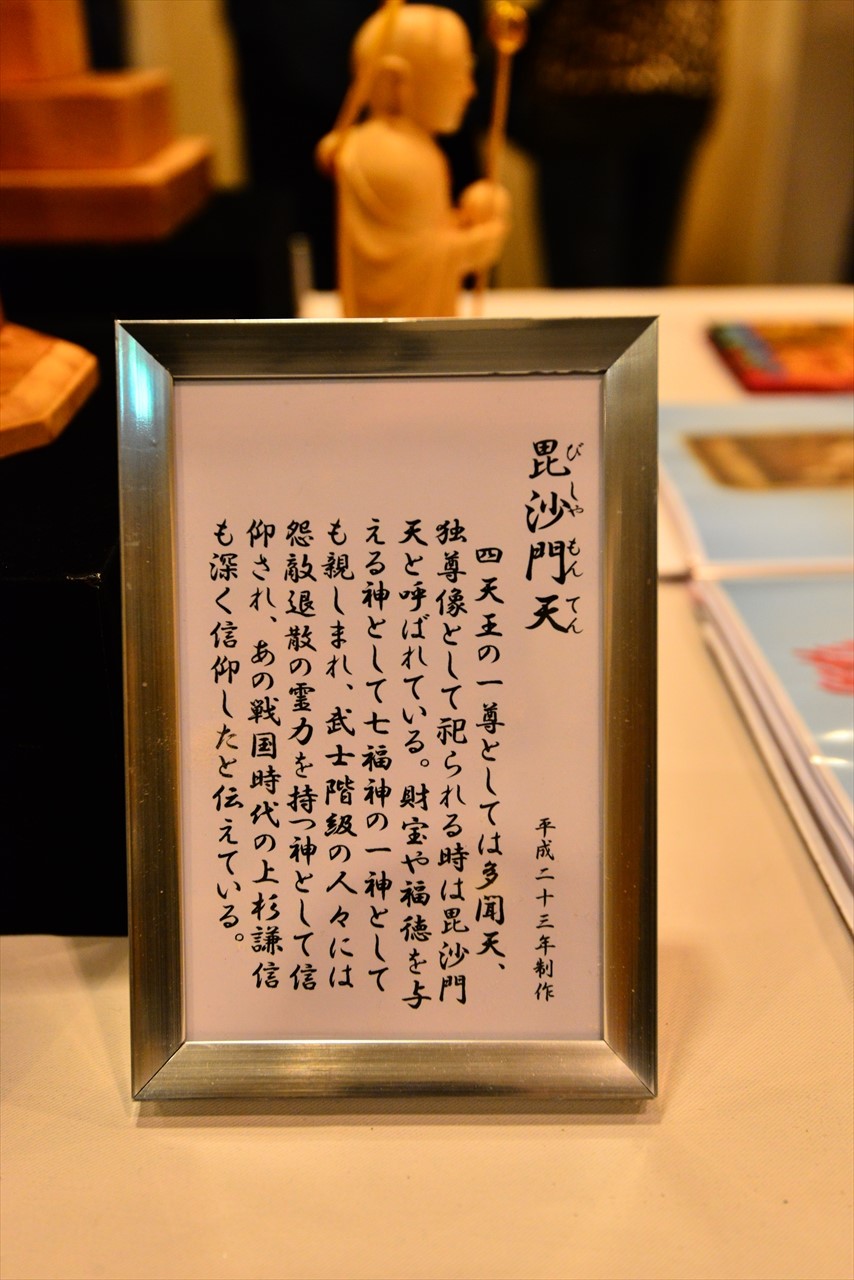 毘沙門天
びしゃもんてん
平成二十三年制作
四天王の一尊としては多聞天、
独尊像として祀られる時は毘沙門
天と呼ばれている。財宝や福徳を与
える神として七福神の一神として
も親しまれ、武士階級の人々には
怨敵退散の霊力を持つ神として信
仰され、あの戦国時代の上杉謙信
も深く信仰したと伝えている。